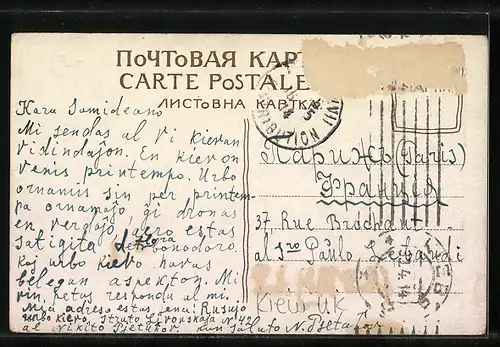 ПОЧТОВАЯ КАР
CARTE POSTALE
ЛИСТОВНА КАРТКА
Kara Samideano
Mi sendas al Vi kievan
vidindaĵon. En kievon
venis printempo. Urbo
ornamis sin per printem-
pa ornamaĵo, ĝi dronas
en verdaĵo, aero estas
satigita de
Kaj urbo Kievo havas
belegan aspekton. Mi
vin petas respondu al mi.
Mia adreso estas jena: Rusujo
urbo Kievo, Strato Livovskaja N 42
al Nikito kun saluto N.
Парижъ (Paris)
Франція
37 Rue Brochant
al sro Paulo
Kiew UK